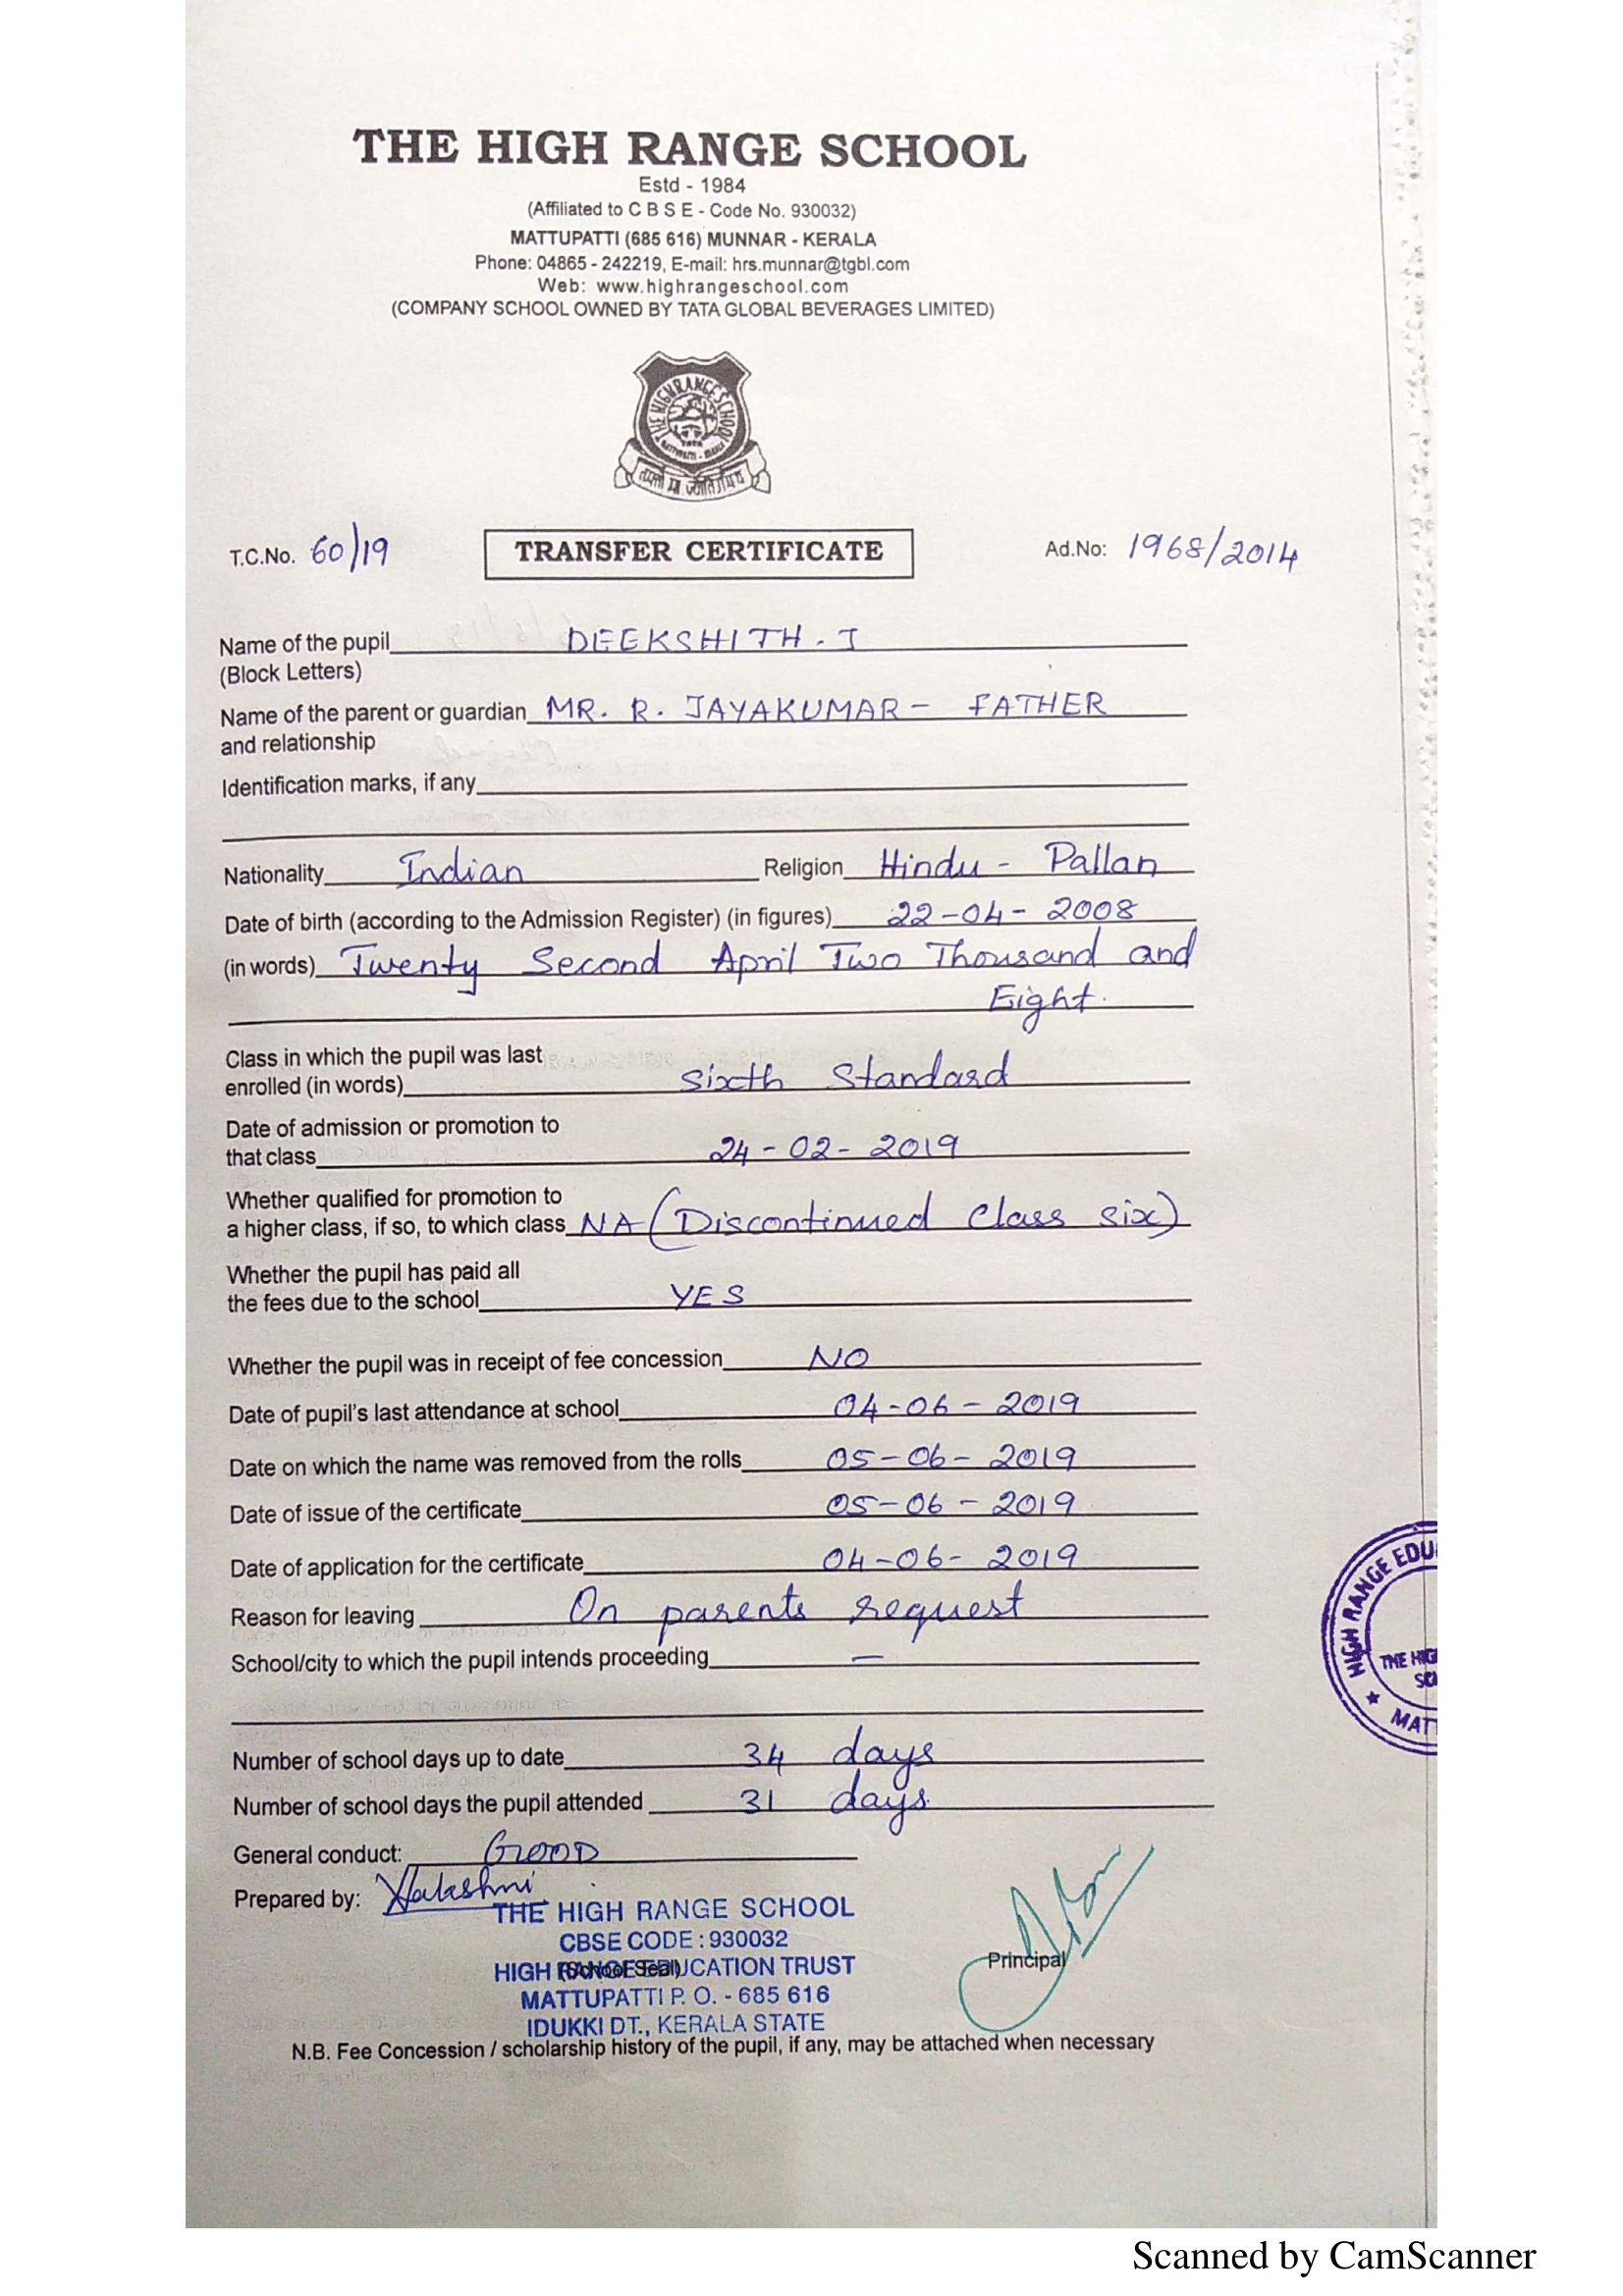 THE HIGH RANGE SCHOOL
Estd - 1984
(Affiliated to C B S E - Code No. 930032)
MATTUPATTI (685 616) MUNNAR - KERALA
Phone: 04865 - 242219, E-mail: hrs.munnar@tgbl.com
Web: www.highrangeschool.com
(COMPANY SCHOOL OWNED BY TATA GLOBAL BEVERAGES LIMITED)
THE HIGH RANGE SCHOOL
T.C.No. 60/19 TRANSFER CERTIFICATE Ad.No: 1968/2014
Name of the pupil DEEKSHITH . J
(Block Letters)
Name of the parent or guardian MR. R. JAYAKUMAR - FATHER
and relationship
Identification marks, if any
Nationality Indian Religion Hindu - Pallan
Date of birth (according to the Admission Register) (in figures) 22-04-2008
(in words) Twenty Second April Two Thousand and
Eight.
Class in which the pupil was last
enrolled (in words) Sixth Standard
Date of admission or promotion to
that class 24-02-2019
Whether qualified for promotion to
a higher class, if so, to which class NA (Discontinued Class six)
Whether the pupil has paid all
the fees due to the school YES
Whether the pupil was in receipt of fee concession NO
Date of pupil's last attendance at school 04-06-2019
Date on which the name was removed from the rolls 05-06-2019
Date of issue of the certificate 05-06-2019
Date of application for the certificate 04-06-2019
Reason for leaving On parents request
School/city to which the pupil intends proceeding —
HIGH RANGE EDU
THE HIG
SC
MAT
Number of school days up to date 34 days
Number of school days the pupil attended 31 days.
General conduct: GOOD
Prepared by:
THE HIGH RANGE SCHOOL
CBSE CODE : 930032
HIGH RANGE EDUCATION TRUST
(School Seal)
Principal
MATTUPATTI P. O. - 685 616
IDUKKI DT., KERALA STATE
N.B. Fee Concession / scholarship history of the pupil, if any, may be attached when necessary
Scanned by CamScanner